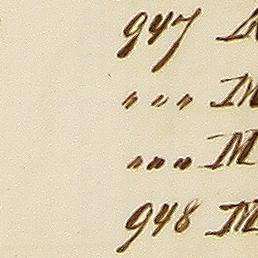 947
" " " M
" " " M
948 M